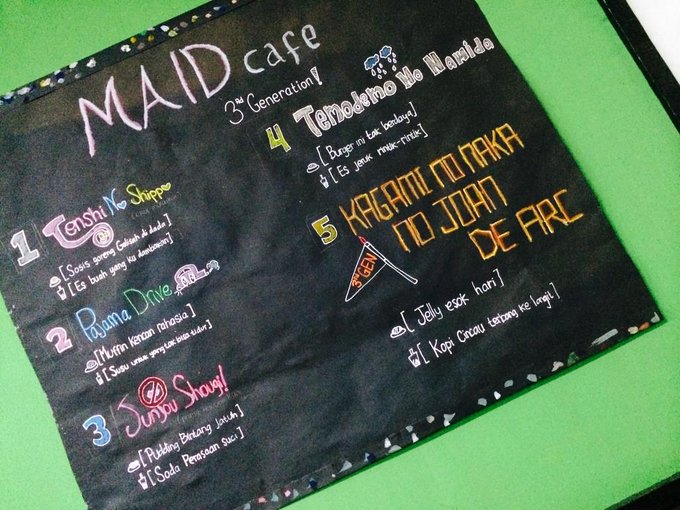 MAID cafe
3rd Generation!
1 Tenshi No Shippo
[Sosis goreng Gelisah di dada]
[Es buah yang ku dambakan]
2 Pajama Drive
[Muffin Kencan rahasia]
[Susu untuk yang tak bisa tidur]
3 Junjou Shougi!
[Pudding Bintang Jatuh]
[Soda Perasaan suci]
4 Temodemo No Namida
[Burger ini tak berdaya]
[Es jeruk rintik-rintik]
5 KAGAMI NO NAKA
NO JOAN
DE ARC
3rd GEN
[Jelly esok hari]
[Kopi Cincau terbang ke langit]